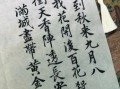 到秋來九月八
我花開後百花
衝天香陣透長
滿城盡帶黃金